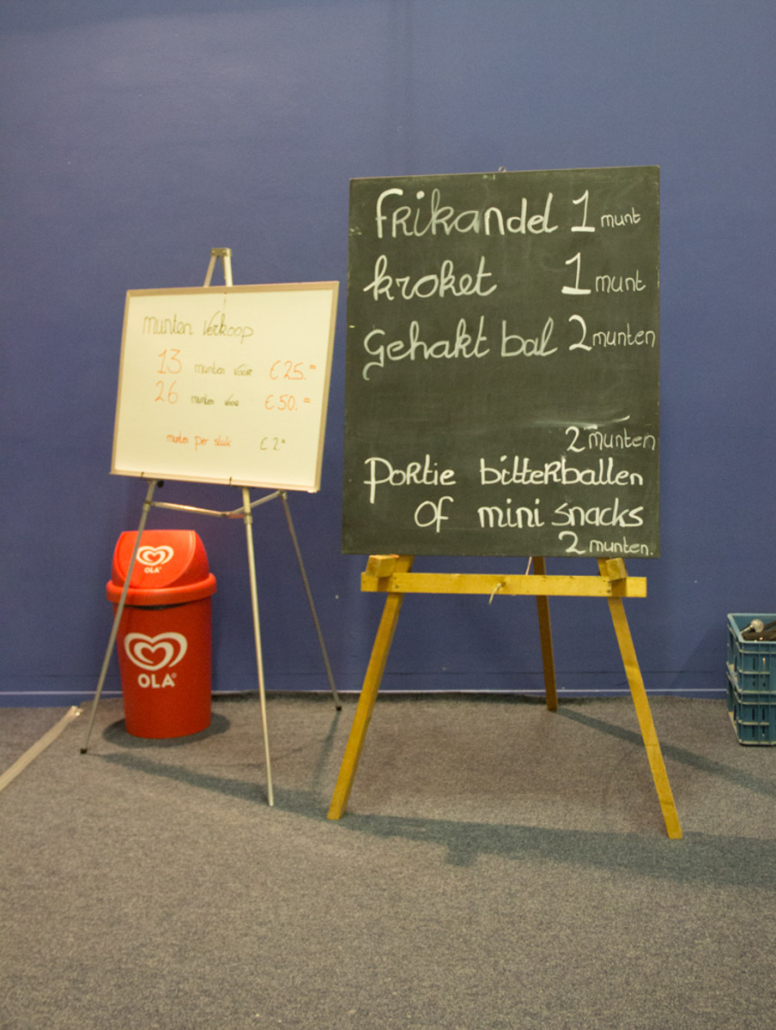 munten verkoop
13 munten voor € 25.=
26 munten voor € 50. =
munten per stuk € 2.=
OLA
OLA®
Frikandel 1 munt
kroket 1 munt
gehakt bal 2 munten
2 munten
portie bitterballen
of mini snacks
2 munten.